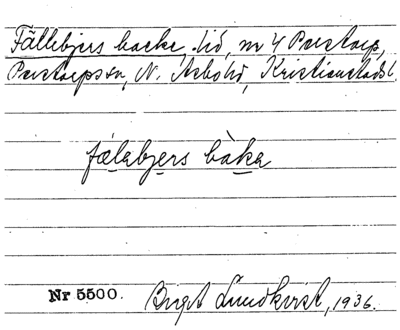 Fällebjers backe, lid, nr 4 Perstorp,
Perstorps sn, N. Åsbo hd, Kristianstads l.
fælabjers bàka
Nr 5500. Birgit Lundkvist, 1936.